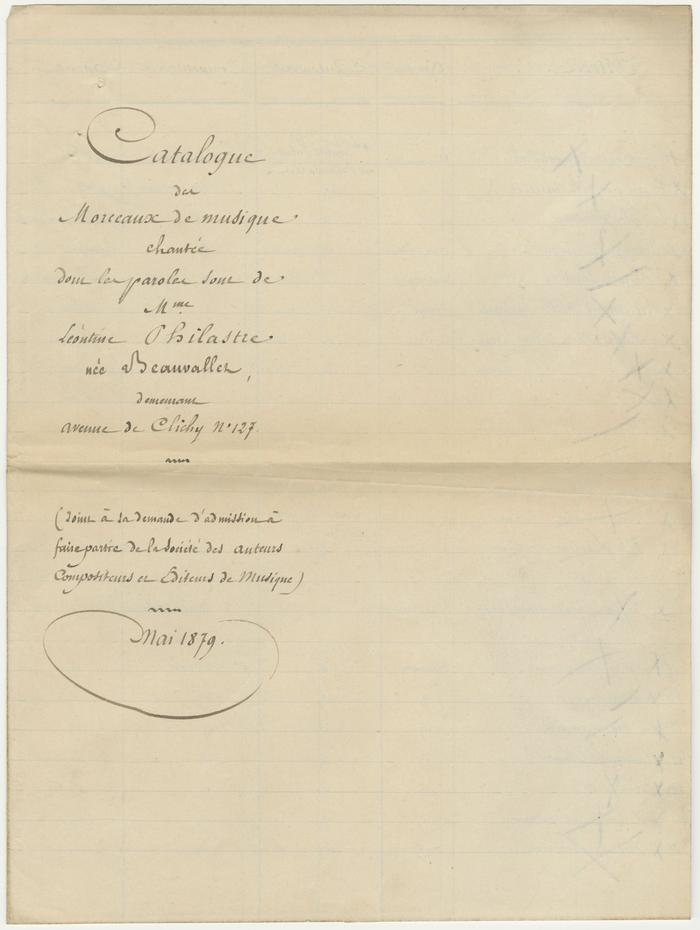 Catalogue
des
Morceaux de musique
chantée
dont les paroles sont de
Mme
Léontine Philastre
née Beauvallet,
demeurant
avenue de Clichy No 127.
(Joint à sa demande d'admission à
faire partie de la Société des auteurs
Compositeurs et Editeurs de Musique)
Mai 1879.